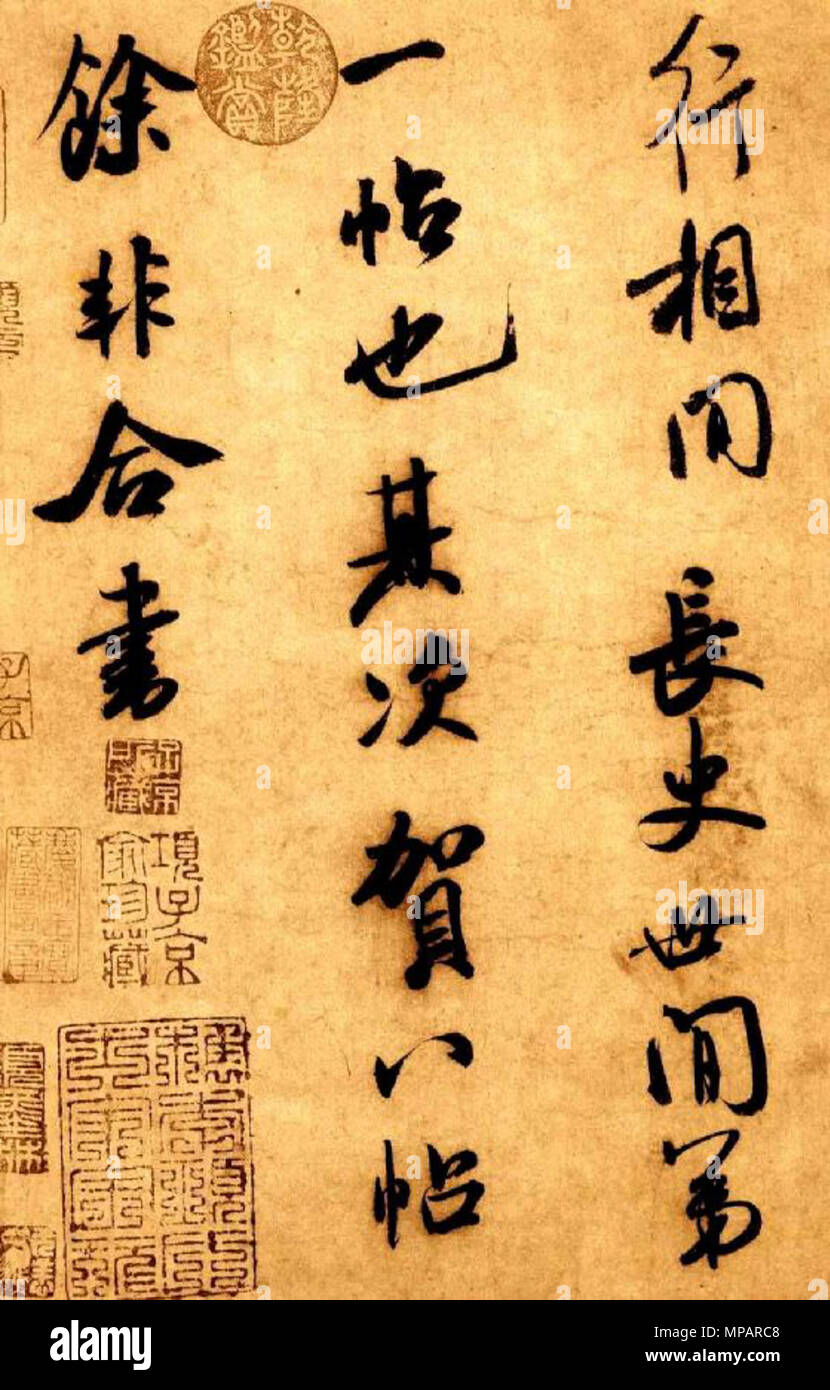 行相間長史世間第
一帖也其次賀八帖
餘非合書
乾隆鑑賞
項子京家珍藏
子京
alamy
Image ID: MPARC8
www.alamy.com